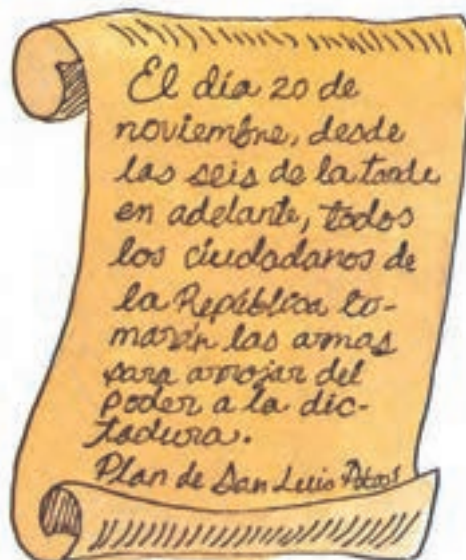 El día 20 de
noviembre, desde
las seis de la tarde
en adelante, todos
los ciudadanos de
la República to-
marán las armas
para arrojar del
poder a la dic-
tadura.
Plan de San Luis Potosí